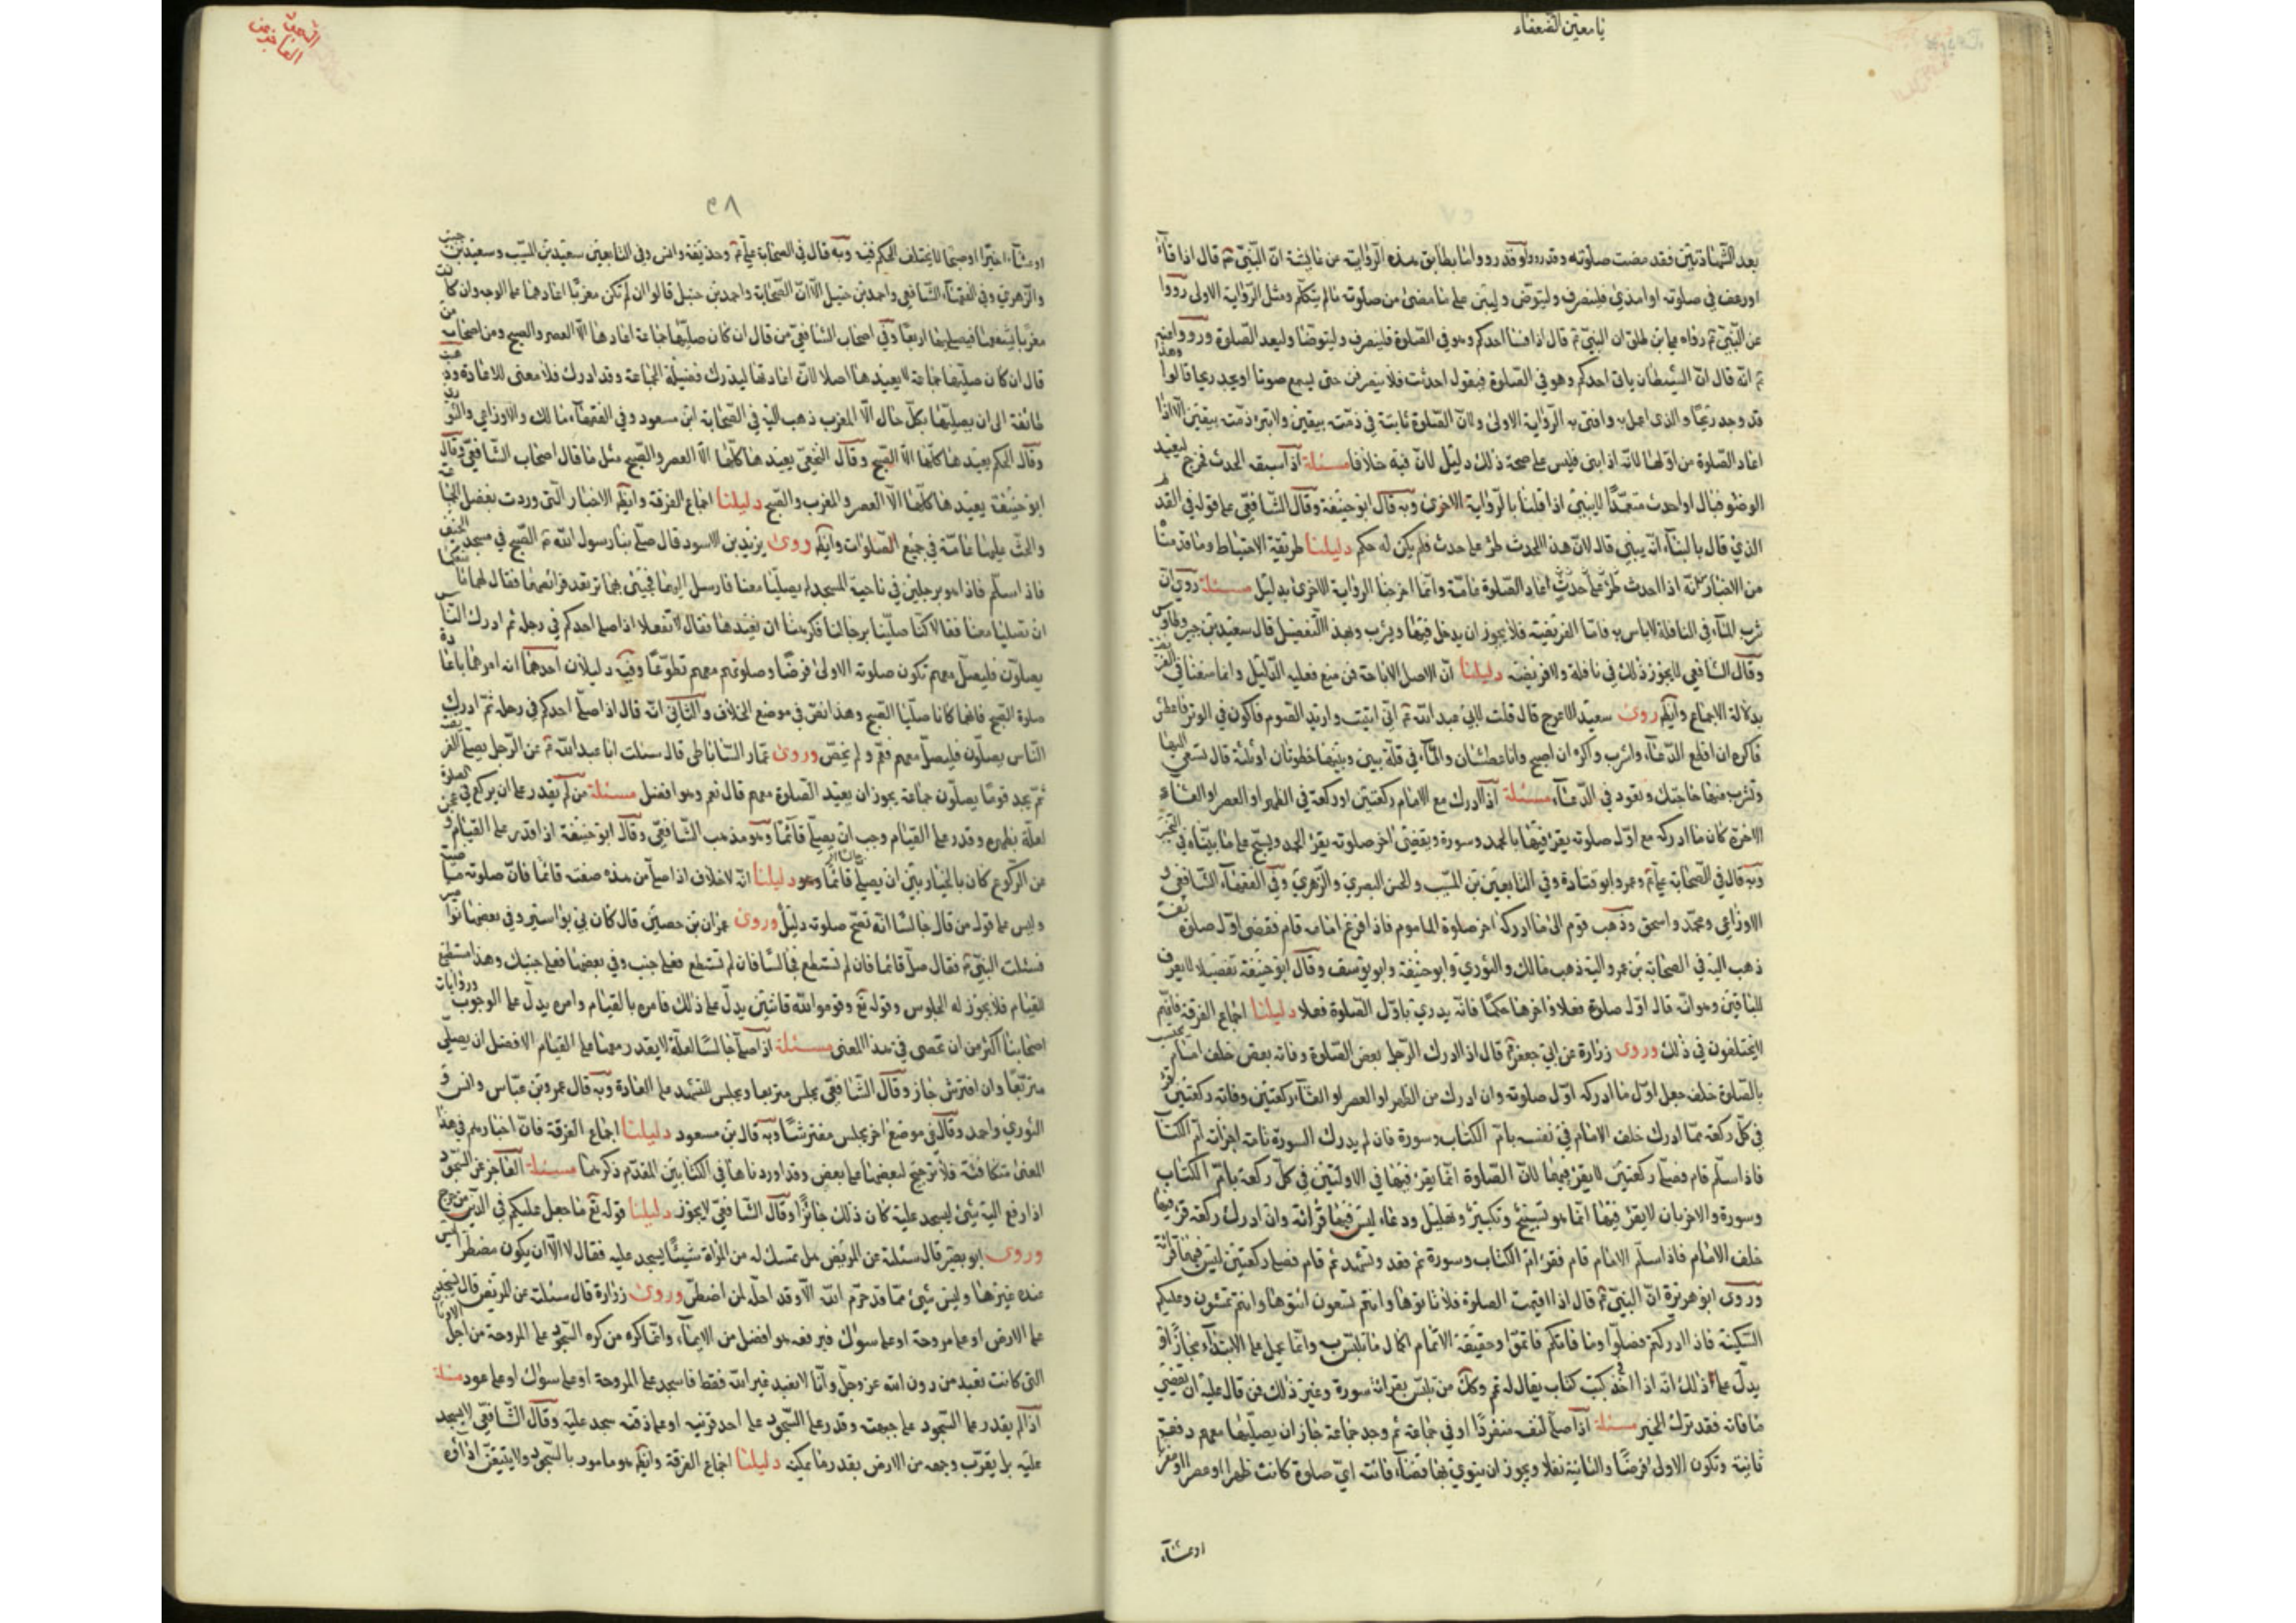 يا معين الضعفاء
بعد الشهادتين فقد مضت صلوته وقد رووا ما يطابق هذه الرواية عن عايشة ان النبي ص قال اذا قاء
او رعف في صلوته او امذى فلينصرف وليتوض وليبن على ما مضى من صلوته ما لم يتكلم ومثل الرواية الاولى رووا
عن النبي ص رواه علي بن طلق ان النبي ص قال اذا فسا احدكم وهو في الصلوة فلينصرف وليتوضا وليعد الصلوة ورووا عنه
ص انه قال ان الشيطان ياتي احدكم وهو في الصلوة فيقول احدثت فلا ينصرفن حتى يسمع صوتا او يجد ريحا قالوا وهذا
قد وجد ريحا والذي اعمل به وافتي به الرواية الاولى ولان الصلوة ثابتة في ذمته بيقين ولا تبرء ذمته بيقين الا اذا
اعاد الصلوة من اولها لانه اذا بنى فليس على صحة ذلك دليل لان فيه خلافا مسئلة اذا سبقه الحدث فخرج ليعيد
الوضوء فبال او احدث متعمدا لا يبني اذا قلنا بالرواية الاخرى وبه قال ابو حنيفة وقال الشافعي على قوله في القديم
الذي قال بالبناء انه يبني قال لان هذا الحدث طرء على حدث فلم يكن له حكم دليلنا طريقة الاحتياط وما قدمنا
من الاخبار انه اذا احدث اعاد الصلوة عامة وانما اخرجنا الرواية الاخرى بدليل مسئلة روى ان
شرب الماء في النافلة لا باس به فاما الفريضة فلا يجوز ان يدخل فيها ويشرب وبهذا التفصيل قال سعيد بن جبير وطاوس
وقال الشافعي لا يجوز ذلك في نافلة ولا فريضة دليلنا ان الاصل الاباحة فمن منع فعليه الدليل وانما منعنا في الفريضة
بدلالة الاجماع وايضا روى سعيد الاعرج قال قلت لابي عبد الله ع اني ابيت واريد الصوم فاكون في الوتر فاعطش
فاكره ان اقطع الدعاء واشرب واكره ان اصبح وانا عطشان والماء في قلة بيني وبينها خطوتان او ثلثة قال تسعى اليها
وتشرب منها حاجتك وتعود في الدعاء مسئلة اذا ادرك مع الامام ركعتين او ركعة في الظهر او العصر او العشاء
الاخرة كان ما ادركه مع اول صلوته يقرء فيها بالحمد وسورة ويقضي اخر صلوته يقرء الحمد ويسبح على ما بيناه في التخيير
وبه قال في الصحابة علي ع وعمر وابو قتادة وفي التابعين بن المسيب والحسن البصري والزهري وفي الفقهاء الشافعي و
الاوزاعي ومحمد واسحق وذهب قوم الى ما ادركه اخر صلوة الماموم فاذا فرغ امامه قام فقضى اول صلوته
ذهب اليه في الصحابة بن عمر واليه ذهب مالك والثوري وابو حنيفة وابو يوسف وقال ابو حنيفة تفصيلا لا يعرف
للباقين وهو انه قال اول صلوة فعلا واخرها حكما فانه يدري باول الصلوة فعلا دليلنا اجماع الفرقة فانهم
لا يختلفون في ذلك وروى زرارة عن ابي جعفر ع قال اذا ادرك الرجل بعض الصلوة وفاته بعض خلف امام يحتسب
بالصلوة خلفه جعل اول ما ادركه اول صلوته وان ادرك من الظهر او العصر او العشاء ركعتين وفاته ركعتين قرء
في كل ركعة مما ادرك خلف الامام في نفسه بام الكتاب وسورة فان لم يدرك السورة تامة اجزاته ام الكتاب
فاذا سلم قام فصلى ركعتين لا يقرء فيهما لان الصلوة انما يقرء فيها في الاولتين في كل ركعة بام الكتاب
وسورة والاخريان لا يقرء فيها انما هو تسبيح وتكبير وتهليل ودعاء ليس فيها قرائة وان ادرك ركعة قرء فيها
خلف الامام فاذا سلم الامام قام فقرء ام الكتاب وسورة ثم قعد وتشهد ثم قام فصلى ركعتين ليس فيهما قرائة
وروى ابو هريرة ان النبي ص قال اذا اقيمت الصلوة فلا تاتوها وانتم تسعون ائتوها وانتم تمشون وعليكم
السكينة فاذا ادركتم فصلوا وما فاتكم فاتموا وحقيقة الاتمام اكمال ما تلبس به وانما يحمل على الابتداء مجازا و
يدل على ذلك انه اذا اخذ في كتب كتاب يقال له تم وكل من تلبس بقرائة سورة وغير ذلك فمن قال عليه ان يقضي
ما فاته فقد ترك الخبر مسئلة اذا صلى لنفسه منفردا او في جماعة ثم وجد جماعة جاز ان يصليها معهم دفعة
ثانية وتكون الاولى فرضا والثانية نفلا ويجوز ان ينوي بها قضاء فائتة اي صلوة كانت ظهرا او عصرا او مغربا
او عشاء
٣٨
او عشاء اخيرا او صبحا لا يختلف الحكم فيه وبه قال في الصحابة علي ع وحذيفة وانس وفي التابعين سعيد بن المسيب وسعيد بن جبير
والزهري وفي الفقهاء الشافعي واحمد بن حنبل الا ان الصحابة واحمد بن حنبل قالوا ان لم تكن مغربا اعادها على الوجه وان كانت
مغربا يشفعها فيصليها اربعا وفي اصحاب الشافعي من قال ان كان صليها جماعة اعادها الا العصر والصبح ومن اصحابه من
قال ان كان صليها جماعة لا يعيدها اصلا لان اعادتها ليدرك فضيلة الجماعة وقد ادرك فلا معنى للاعادة وذهبت
طائفة الى ان يصليها بكل حال الا المغرب ذهب اليه في الصحابة ابن مسعود وفي الفقهاء مالك والاوزاعي والثوري
وقال الحكم يعيدها كلها الا الصبح وقال النخعي يعيدها كلها الا العصر والصبح مثل ما قال اصحاب الشافعي وقال
ابو حنيفة يعيدها كلها الا العصر والمغرب والصبح دليلنا اجماع الفرقة وايضا الاخبار التي وردت بفضل الجماعة
والحث عليها عامة في جميع الصلوات وايضا روى يزيد بن الاسود قال صلى بنا رسول الله ص الصبح في مسجد الخيف
فاذا سلم فاذا هو برجلين في ناحية المسجد لم يصليا معنا فارسل اليهما فجيئ بهما ترتعد فرائصهما فقال لهما ما منعكما
ان تصليا معنا فقالا كنا صلينا برحالنا فكرهنا ان نعيدها فقال لا تفعلا اذا صلى احدكم في رحله ثم ادرك الناس
يصلون فليصل معهم تكون صلوته الاولى فرضا وصلوتهم معهم تطوعا وفيه دليلان احدهما انه امرهما باعادة
صلوة الصبح فانهما كانا صليا الصبح وهذا نص في موضع الخلاف والثاني انه قال اذا صلى احدكم في رحله ثم ادرك
الناس يصلون فليصل معهم فعم ولم يخص وروى عمار الساباطي قال سئلت ابا عبد الله ع عن الرجل يصلي الفريضة
ثم يجد قوما يصلون جماعة يجوز ان يعيد الصلوة معهم قال نعم وهو افضل مسئلة من لم يقدر على ان يركع في الصلوة
لعلة بظهره وقدر على القيام وجب ان يصلي قائما وهو مذهب الشافعي وقال ابو حنيفة اذا قدر على القيام وعجز
عن الركوع كان بالخيار بين ان يصلي قائما او جالسا دليلنا انه لا خلاف اذا صلى من هذه صفته قائما فان صلوته صحيحة
وليس على قول من قال جالسا انه تصح صلوته دليل وروى عمران بن حصين قال كان بي بواسير وفي بعضها
فسئلت النبي ص فقال صل قائما فان لم تستطع فجالسا فان لم تستطع فعلى جنب وفي بعضها فعلى جنبك وهذا مستطيع
للقيام فلا يجوز له الجلوس وقوله تع وقوموا لله قانتين يدل على ذلك فامره بالقيام وامره يدل على الوجوب وروايات
اصحابنا اكثر من ان تحصى في هذا المعنى مسئلة اذا صلى جالسا لعلة لا يقدر معها على القيام الافضل ان يصلي
متربعا وان افترش جاز وقال الشافعي يجلس متربعا ويجلس للتشهد على العادة وبه قال عمرو بن عباس وانس و
الثوري واحمد وقال في موضع اخر يجلس مفترشا وبه قال بن مسعود دليلنا اجماع الفرقة فان اخبارهم في هذا
المعنى متكافئة فلا ترجيح لبعضها على بعض وقد اوردناها في الكتابين المقدم ذكرهما مسئلة العاجز عن السجود
اذا رفع اليه شيئ ليسجد عليه كان ذلك جائزا وقال الشافعي لا يجوز دليلنا قوله تع ما جعل عليكم في الدين من حرج
وروى ابو بصير قال سئلته عن المريض هل تمسك له المراة شيئا يسجد عليه فقال لا الا ان يكون مضطرا ليس
عنده غيرها وليس شيئ مما قد حرم الله الا وقد احله لمن اضطر وروى زرارة قال سئلته عن المريض قال يسجد
على الارض او على مروحة او على سواك فيرفعه هو افضل من الايماء وانما كره من كره السجود على المروحة من اجل الاوثان
التي كانت تعبد من دون الله عز وجل وانا لا نعبد غير الله فقط فاسجد على المروحة او على سواك او على عود مسئلة
اذا لم يقدر على السجود على جبهته وقدر على السجود على احد قرنيه او على ذقنه سجد عليه وقال الشافعي لا يسجد
عليه بل يقرب وجهه من الارض بقدر ما يمكنه دليلنا اجماع الفرقة وايضا هو مامور بالسجود ولا يتيقن اذا